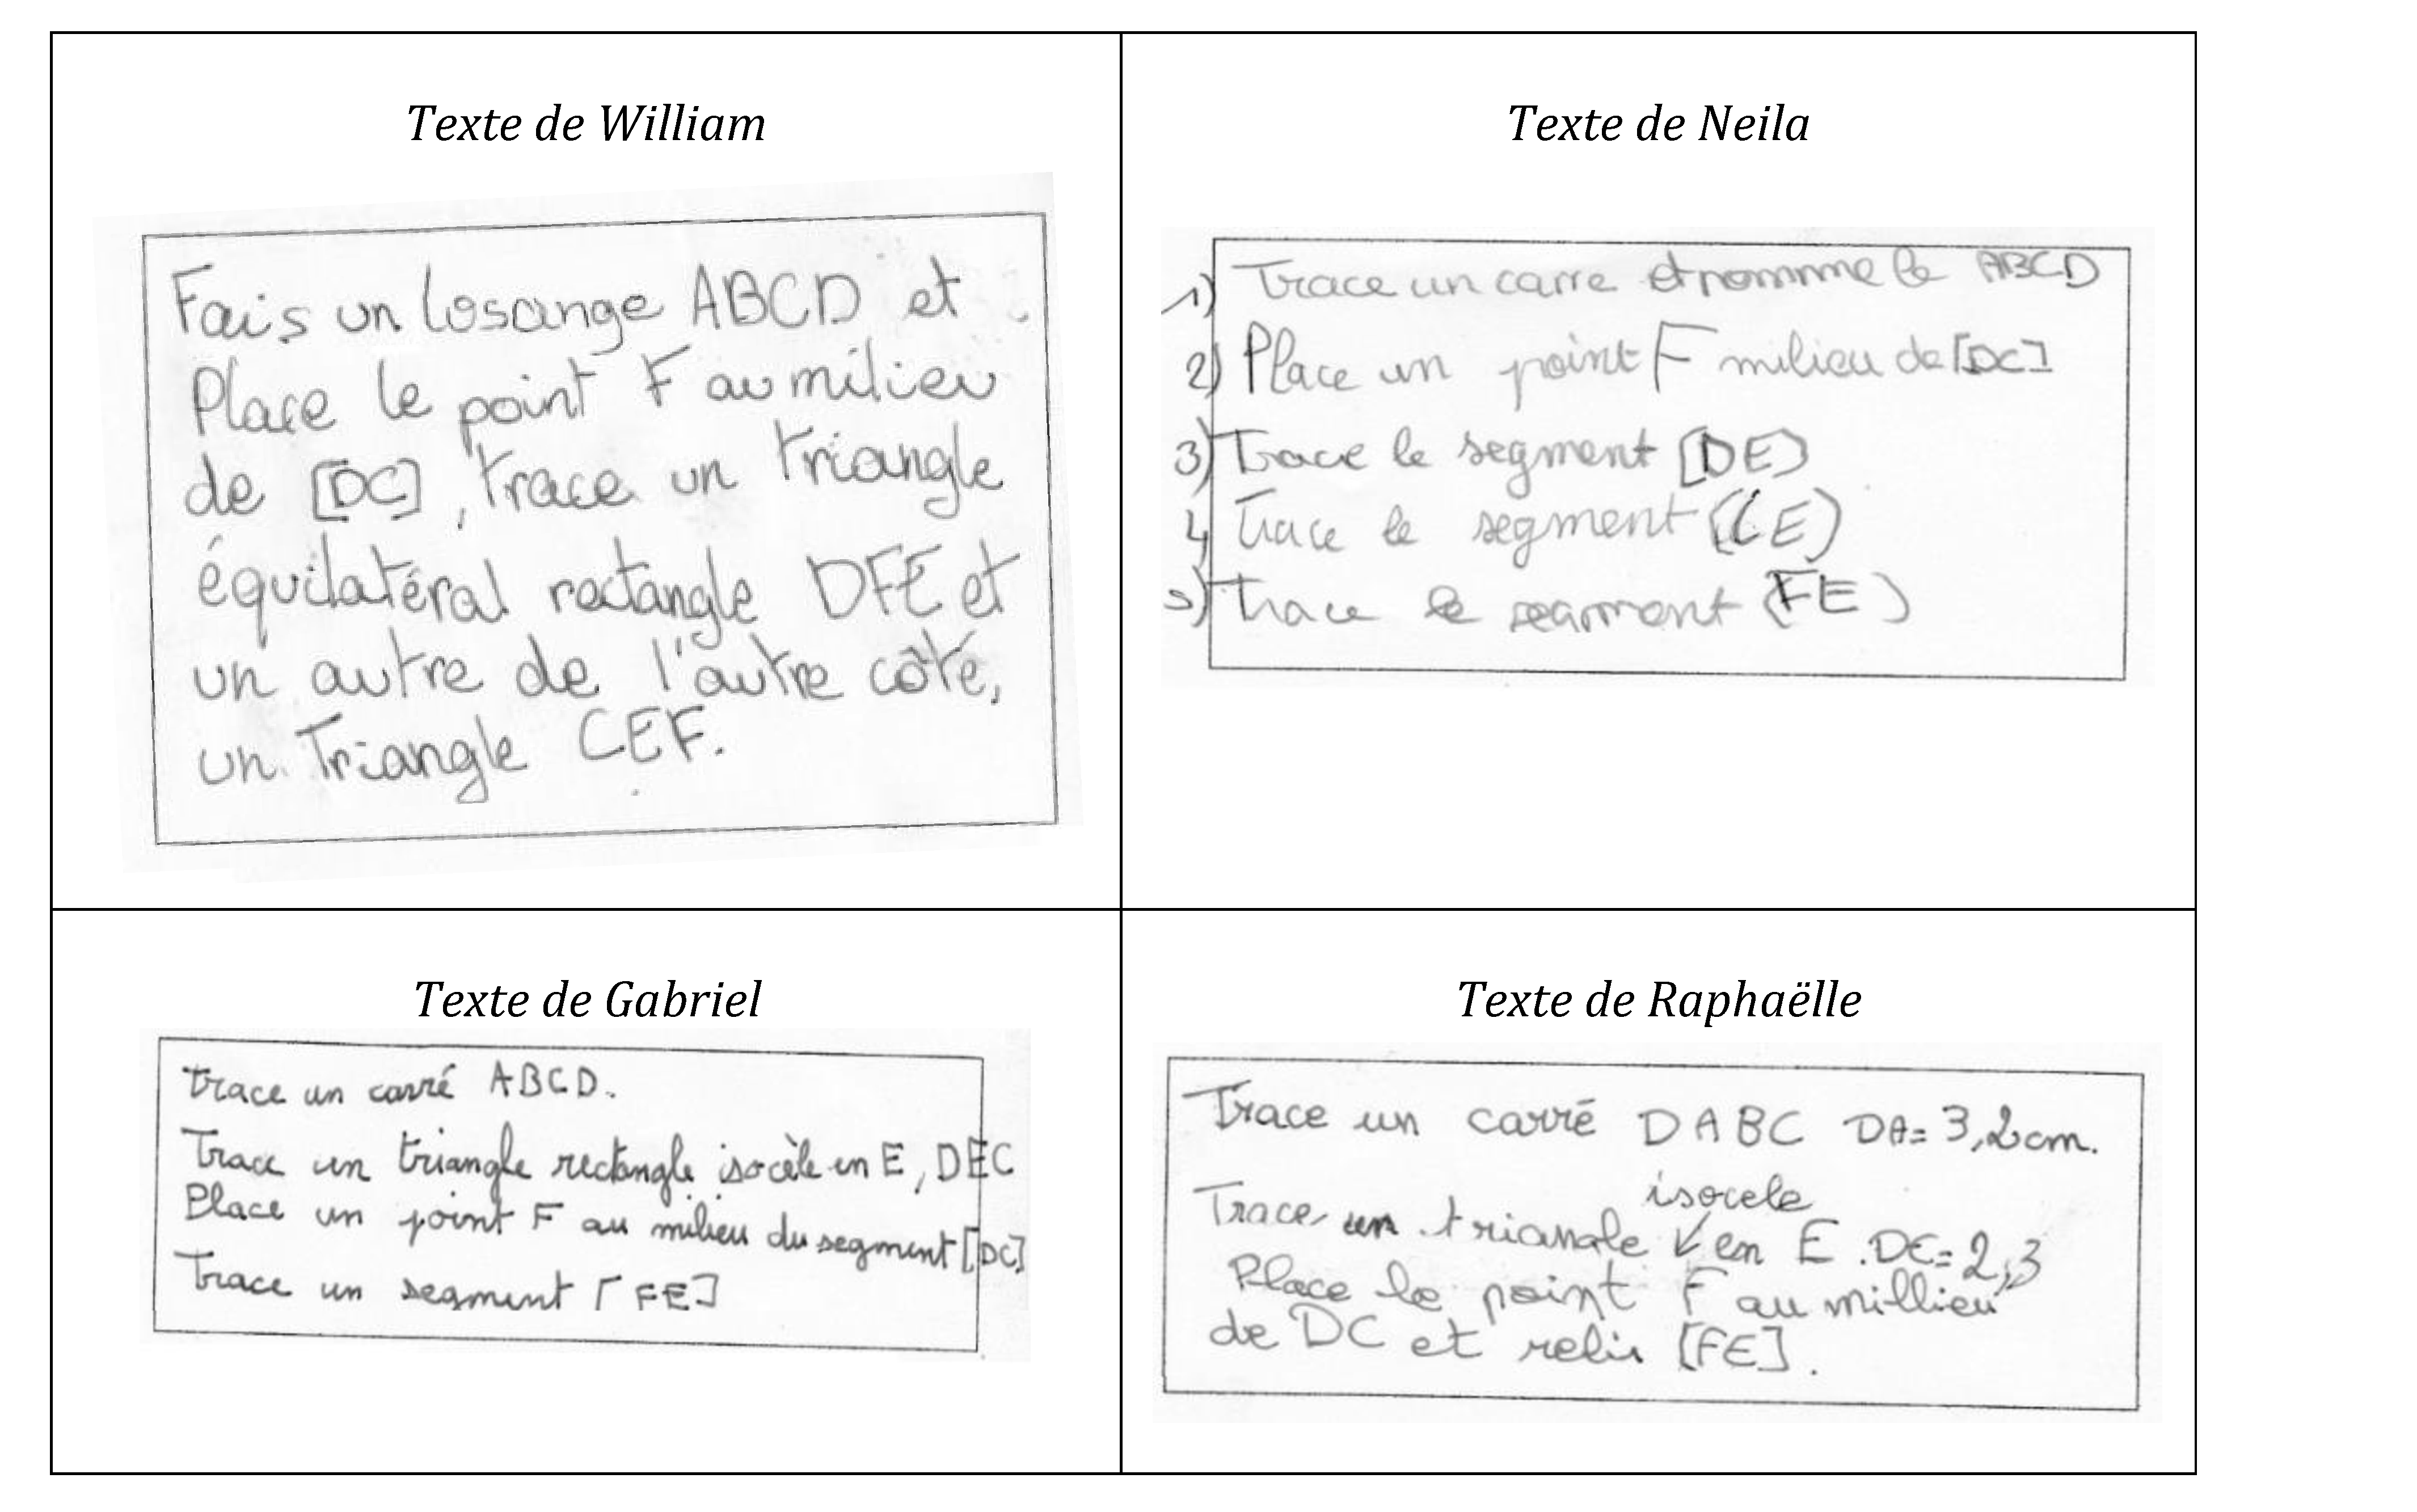 Texte de William
Fais un losange ABCD et
Place le point F au milieu
de [DC], trace un triangle
équilatéral rectangle DFE et
un autre de l'autre côté,
un Triangle CEF.
Texte de Neila
1) Trace un carre et nomme le ABCD
2) Place un point F milieu de [DC]
3) Trace le segment [DE)
4) Trace le segment (CE)
5) Trace le segment (FE)
Texte de Gabriel
Trace un carré ABCD.
Trace un triangle rectangle isocèle en E, DEC
Place un point F au milieu du segment [DC]
Trace un segment [FE]
Texte de Raphaëlle
Trace un carré DABC DA= 3,2cm.
isocele
Trace un triangle ↙ en E. DE= 2,3
Place le point F au millieu
de DC et relis [FE].